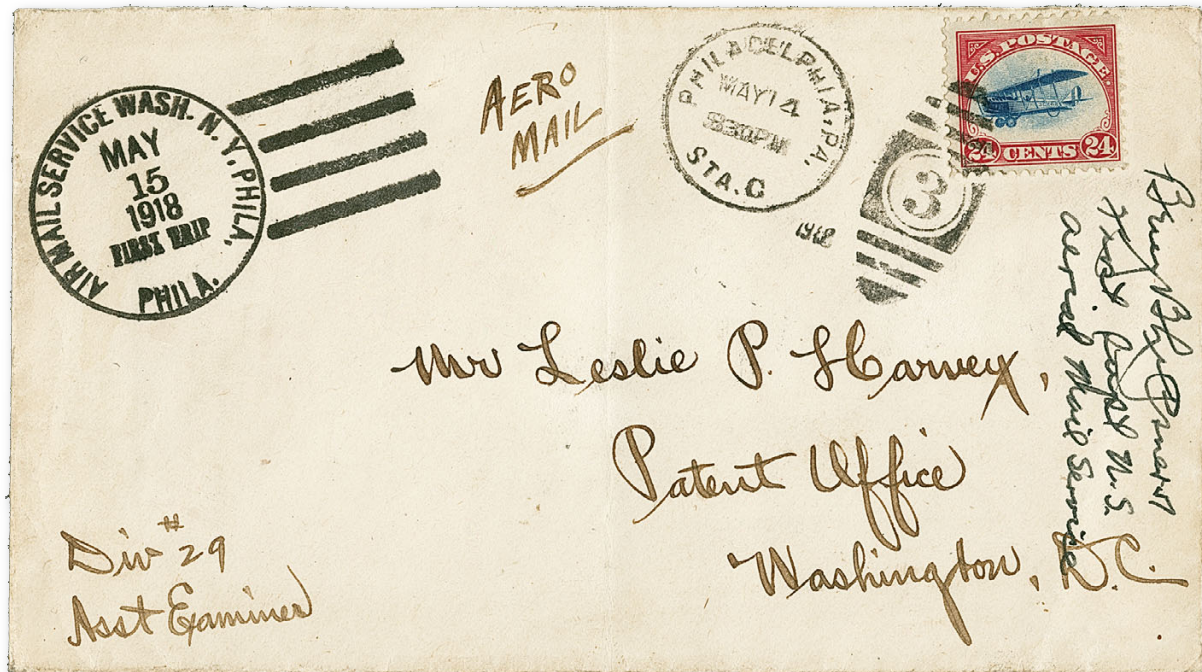 AIR MAIL SERVICE WASH. N.Y. PHILA.
MAY
15
1918
FIRST TRIP
PHILA.
AERO
MAIL
PHILADELPHIA, PA.
MAY 14
830PM
STA. C
1918
3
U.S. POSTAGE.
24 CENTS 24
Mr Leslie P. Harvey,
Patent Office
Washington, D.C.
Div # 29
Asst Examiner
First U.S.
aerial Mail Service